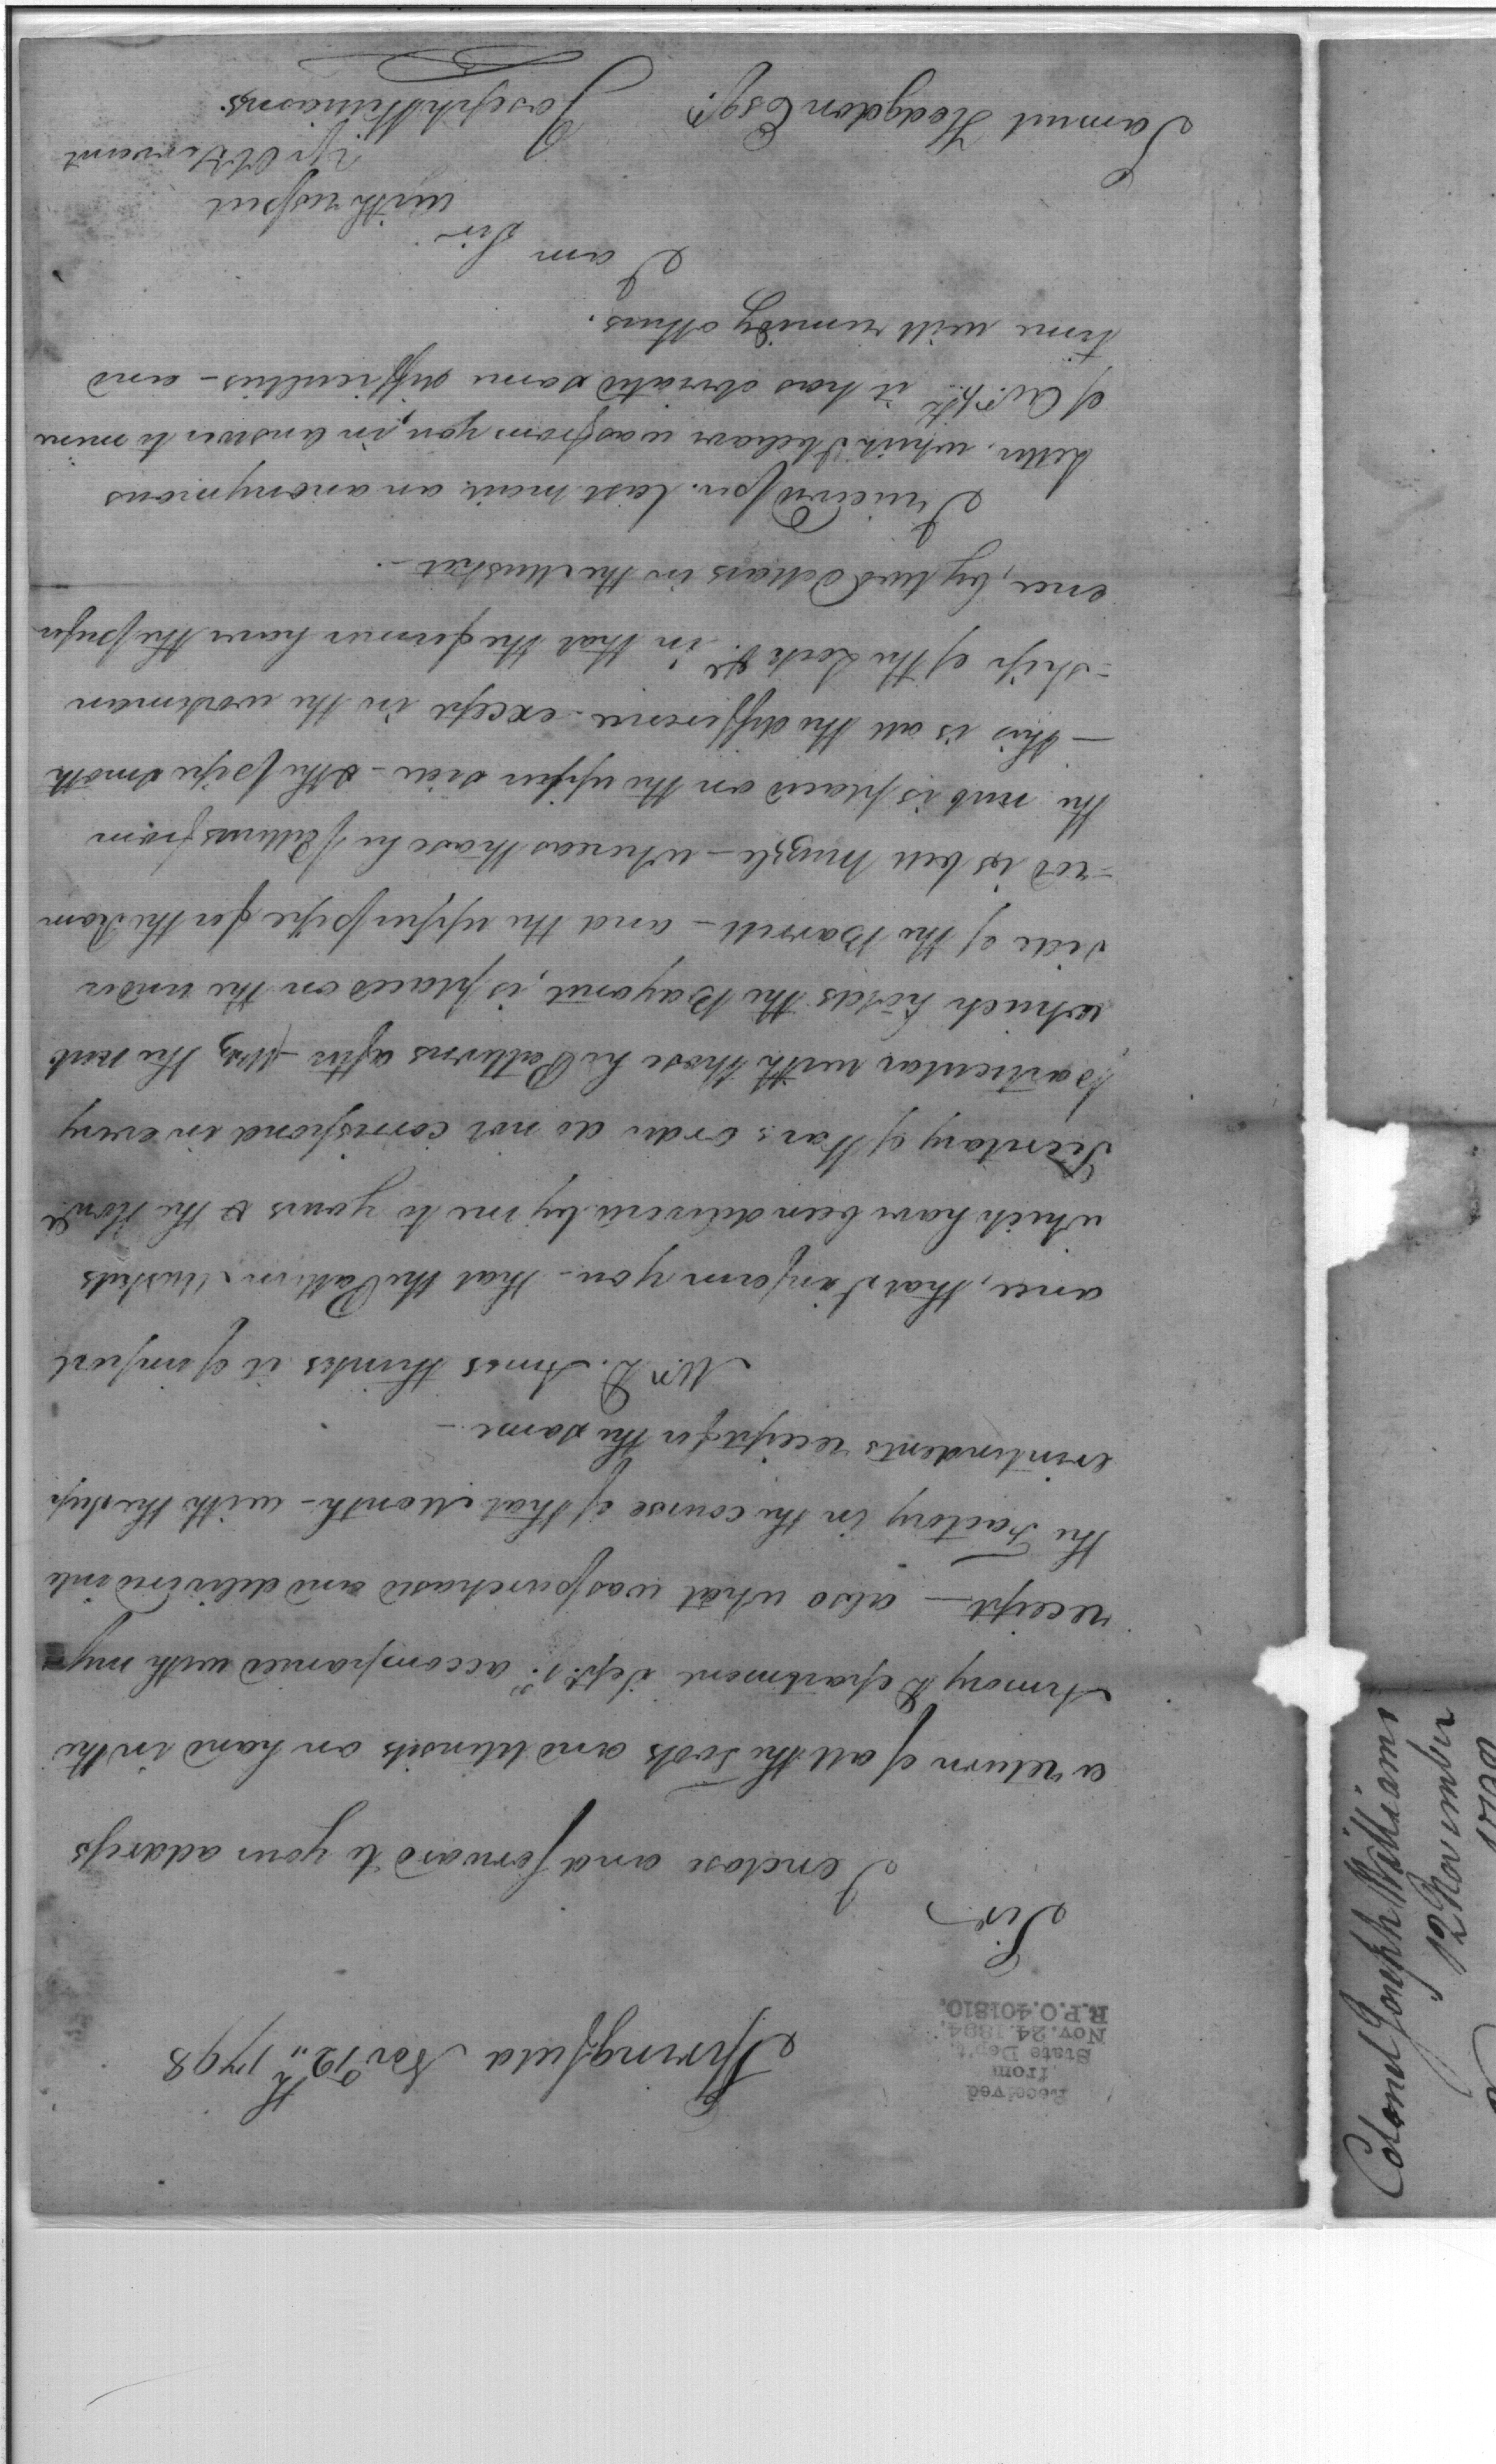 Received
from
State Dep't.
Nov. 24. 1894.
R.P.O. 401810.
Springfield Nov.r 12.th 1798
Sir
I enclose and forward to your address
a return of all the Tools and Utensils on hand in the
Armory Department Sept. 1.st accompanied with my
receipt — also what was purchased and delivered into
the Factory in the course of that Month — with the Sup
erintendents receipt for the same —
Mr. D. Ames thinks it of import
ance, that I inform you — that the Pattern Muskets
which have been delivered by me to yours & the Honle
Secretary of War's order do not correspond in every
particular with those he Patterns after — Viz, the nub
which holds the Bayonet, is placed on the under
side of the Barrell — and the upper pipe for the Ram
-rod is bell muzzle — whereas those he patterns from
the nub is placed on the upper side — & the pipe smooth
— this is all the difference — except in the workman
-ship of the Lock &c. in that the former have the prefer
ence, by two Dollars in the Musket —
I received per. last mail an anonymous
Letter, which I believe was from you, in answer to mine
of it has obviated some difficulties — and
time will remidy others.
I am Sir
with respect
Yr Obt Servant
Joseph Williams
Samuel Hodgdon Esqr.
Colonel Joseph Williams
12 November
1798